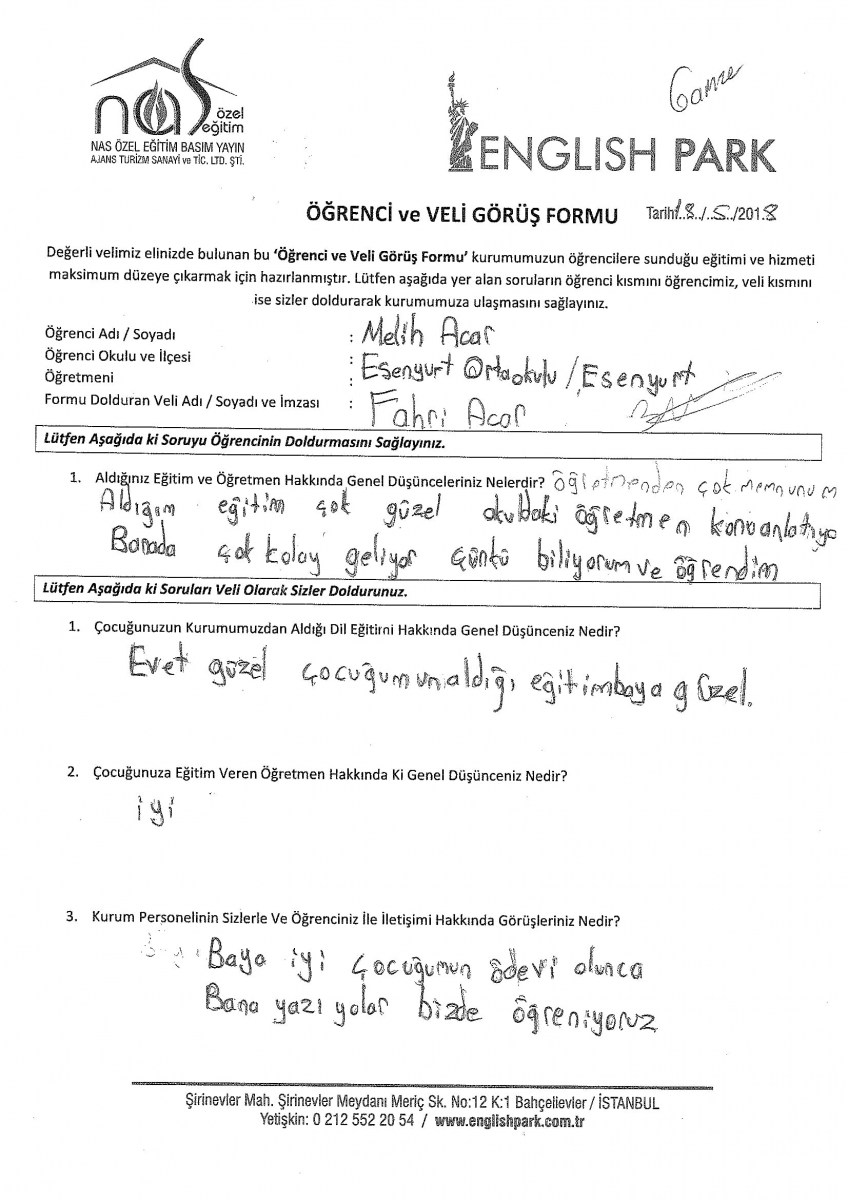 nas özel
eğitim
NAS ÖZEL EĞİTİM BASIM YAYIN
AJANS TURİZM SANAYİ ve TİC. LTD. ŞTİ.
Gamze
ENGLISH PARK
ÖĞRENCİ ve VELİ GÖRÜŞ FORMU Tarih18./.5./2018
Değerli velimiz elinizde bulunan bu ‘Öğrenci ve Veli Görüş Formu’ kurumumuzun öğrencilere sunduğu eğitimi ve hizmeti
maksimum düzeye çıkarmak için hazırlanmıştır. Lütfen aşağıda yer alan soruların öğrenci kısmını öğrencimiz, veli kısmını
ise sizler doldurarak kurumumuza ulaşmasını sağlayınız.
Öğrenci Adı / Soyadı : Melih Acar
Öğrenci Okulu ve İlçesi : Esenyurt Ortaokulu / Esenyurt
Öğretmeni :
Formu Dolduran Veli Adı / Soyadı ve İmzası : Fahri Acar
Lütfen Aşağıda ki Soruyu Öğrencinin Doldurmasını Sağlayınız.
1. Aldığınız Eğitim ve Öğretmen Hakkında Genel Düşünceleriniz Nelerdir? öğretmenden çok memnunum
Aldığım eğitim çok güzel okuldaki öğretmen konuanlatıyo
Banada çok kolay geliyor çünkü biliyorum ve öğrendim
Lütfen Aşağıda ki Soruları Veli Olarak Sizler Doldurunuz.
1. Çocuğunuzun Kurumumuzdan Aldığı Dil Eğitimi Hakkında Genel Düşünceniz Nedir?
Evet güzel çocuğumun aldığı eğitim baya güzel.
2. Çocuğunuza Eğitim Veren Öğretmen Hakkında Ki Genel Düşünceniz Nedir?
iyi
3. Kurum Personelinin Sizlerle Ve Öğrenciniz İle İletişimi Hakkında Görüşleriniz Nedir?
Baya iyi çocuğumun ödevi olunca
Bana yazı yolar bizde öğreniyoruz
Şirinevler Mah. Şirinevler Meydanı Meriç Sk. No:12 K:1 Bahçelievler / İSTANBUL
Yetişkin: 0 212 552 20 54 / www.englishpark.com.tr